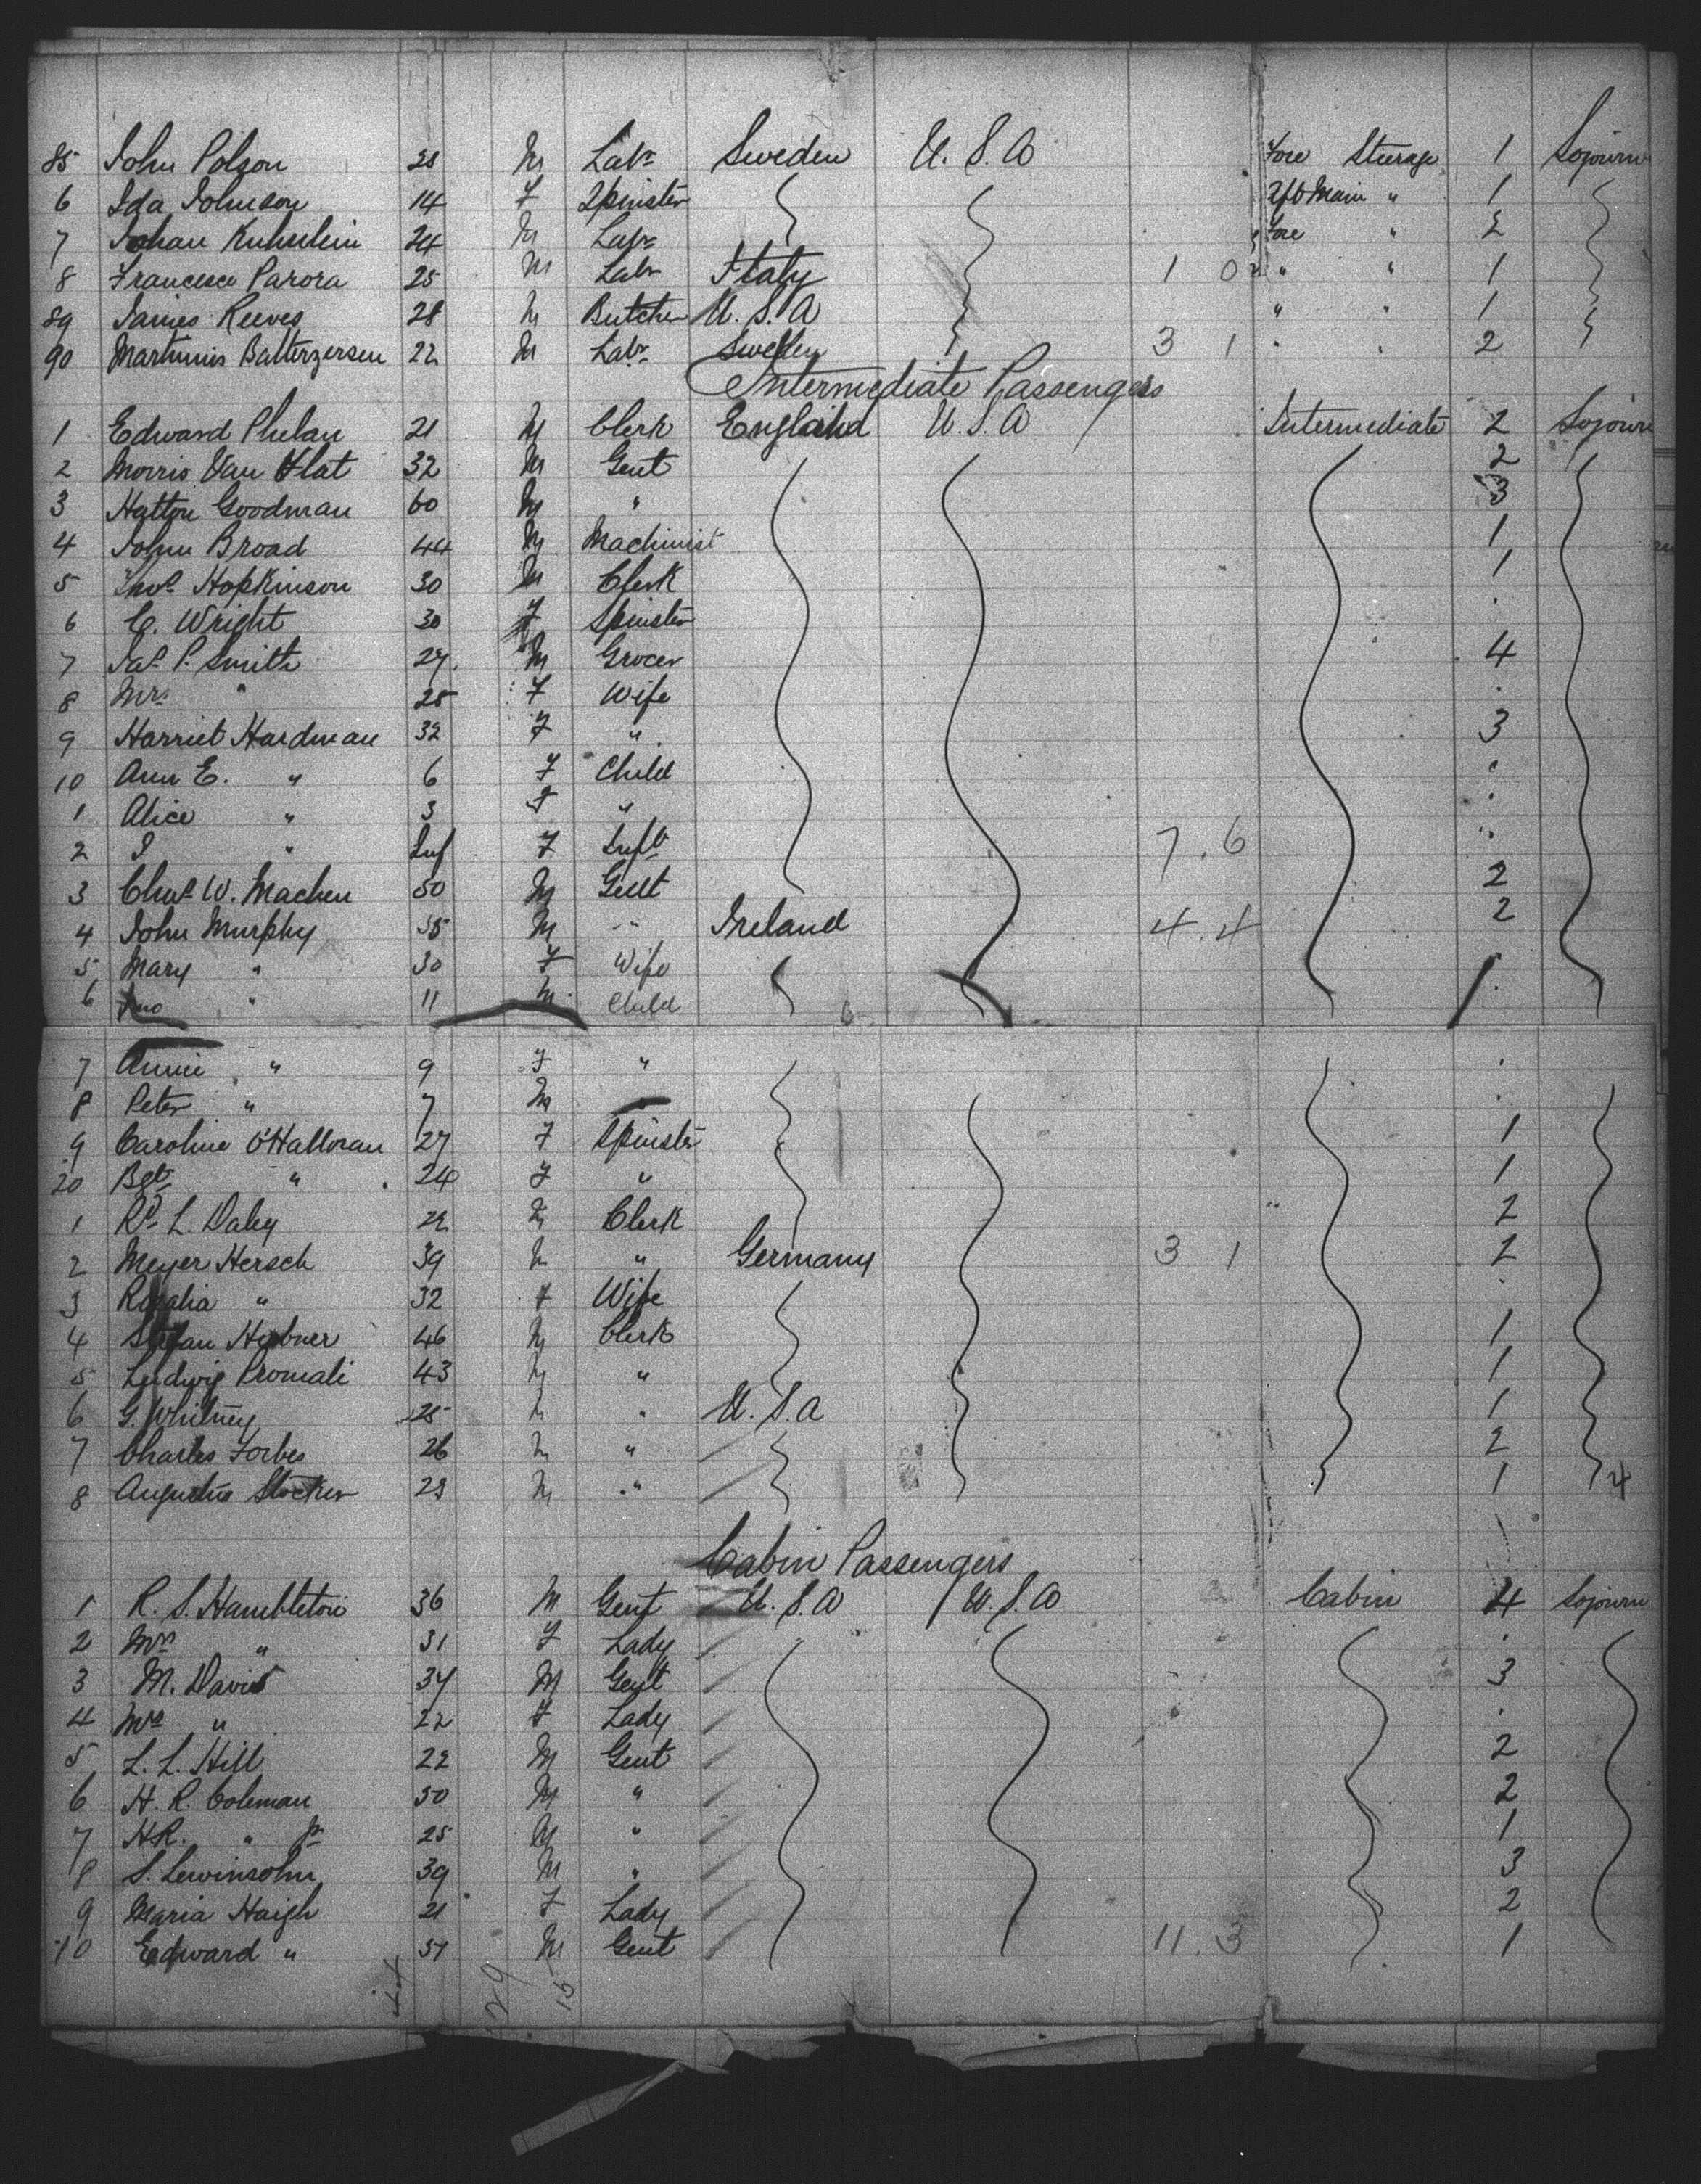 85 John Polson 28 M Labr Sweden U.S.A Fore Steerage 1 Sojourn
6 Ida Johnson 14 F Spinster Main " 1
7 Johan 24 M Labr Fore " 2
8 Francesco Parora 25 M Labr Italy 1 0 " " 1
89 James Reeves 28 M Butcher U.S.A " " 1
90 Martinius Balterzersen 22 M Labr Sweden 3 1 " " 2
Intermediate Passengers
1 Edward Phelan 21 M Clerk England U.S.A Intermediate 2 Sojourn
2 Morris Van Flat 32 M Gent 2
3 Hatton Goodman 60 M " 3
4 John Broad 44 M Machinist 1
5 Thos Hopkinson 30 M Clerk 1
6 C. Wright 30 F Spinster .
7 Jas P. Smith 27 M Grocer 4
8 Mrs " 25 F Wife .
9 Harriet Hardman 32 F " 3
10 Ann E. " 6 F Child .
1 Alice " 3 F " .
2 I " Inf F Inft 7. 6 .
3 Chas W. Machen 50 M Gent 2
4 John Murphy 35 M " Ireland 4. 4 2
5 Mary " 30 F Wife
6 Jno " 11 M Child 6 .
7 Annie " 9 F " .
8 Peter " 7 M .
9 Caroline O'Halloran 27 F Spinster 1
20 Bgt " 24 F " 1
1 Rd L. Daley 22 M Clerk 2
2 Meyer Hersch 39 M " Germany 3 1 2
3 Rosalia " 32 F Wife .
4 Stefan Hubner 46 M Clerk 1
5 Ludwig Promali 43 M " 1
6 G. Whitney 25 M " U.S.A 1
7 Charles Forbes 26 M " 2
8 Augustus Stocker 23 M " 1 4
Cabin Passengers
1 R. S. Hambleton 36 M Gent U.S.A U.S.A Cabin 4 Sojourn
2 Mrs " 31 F Lady .
3 M. Davis 34 M Gent 3
4 Mrs " 22 F Lady .
5 L. L. Hill 22 M Gent 2
6 H. R. Coleman 50 M " 2
7 H R. " Jr 25 M " 1
8 S. Lewinsohn 39 M " 3
9 Maria Haigh 21 F Lady 2
10 Edward " 51 M Gent 11. 3 1
44 29 15